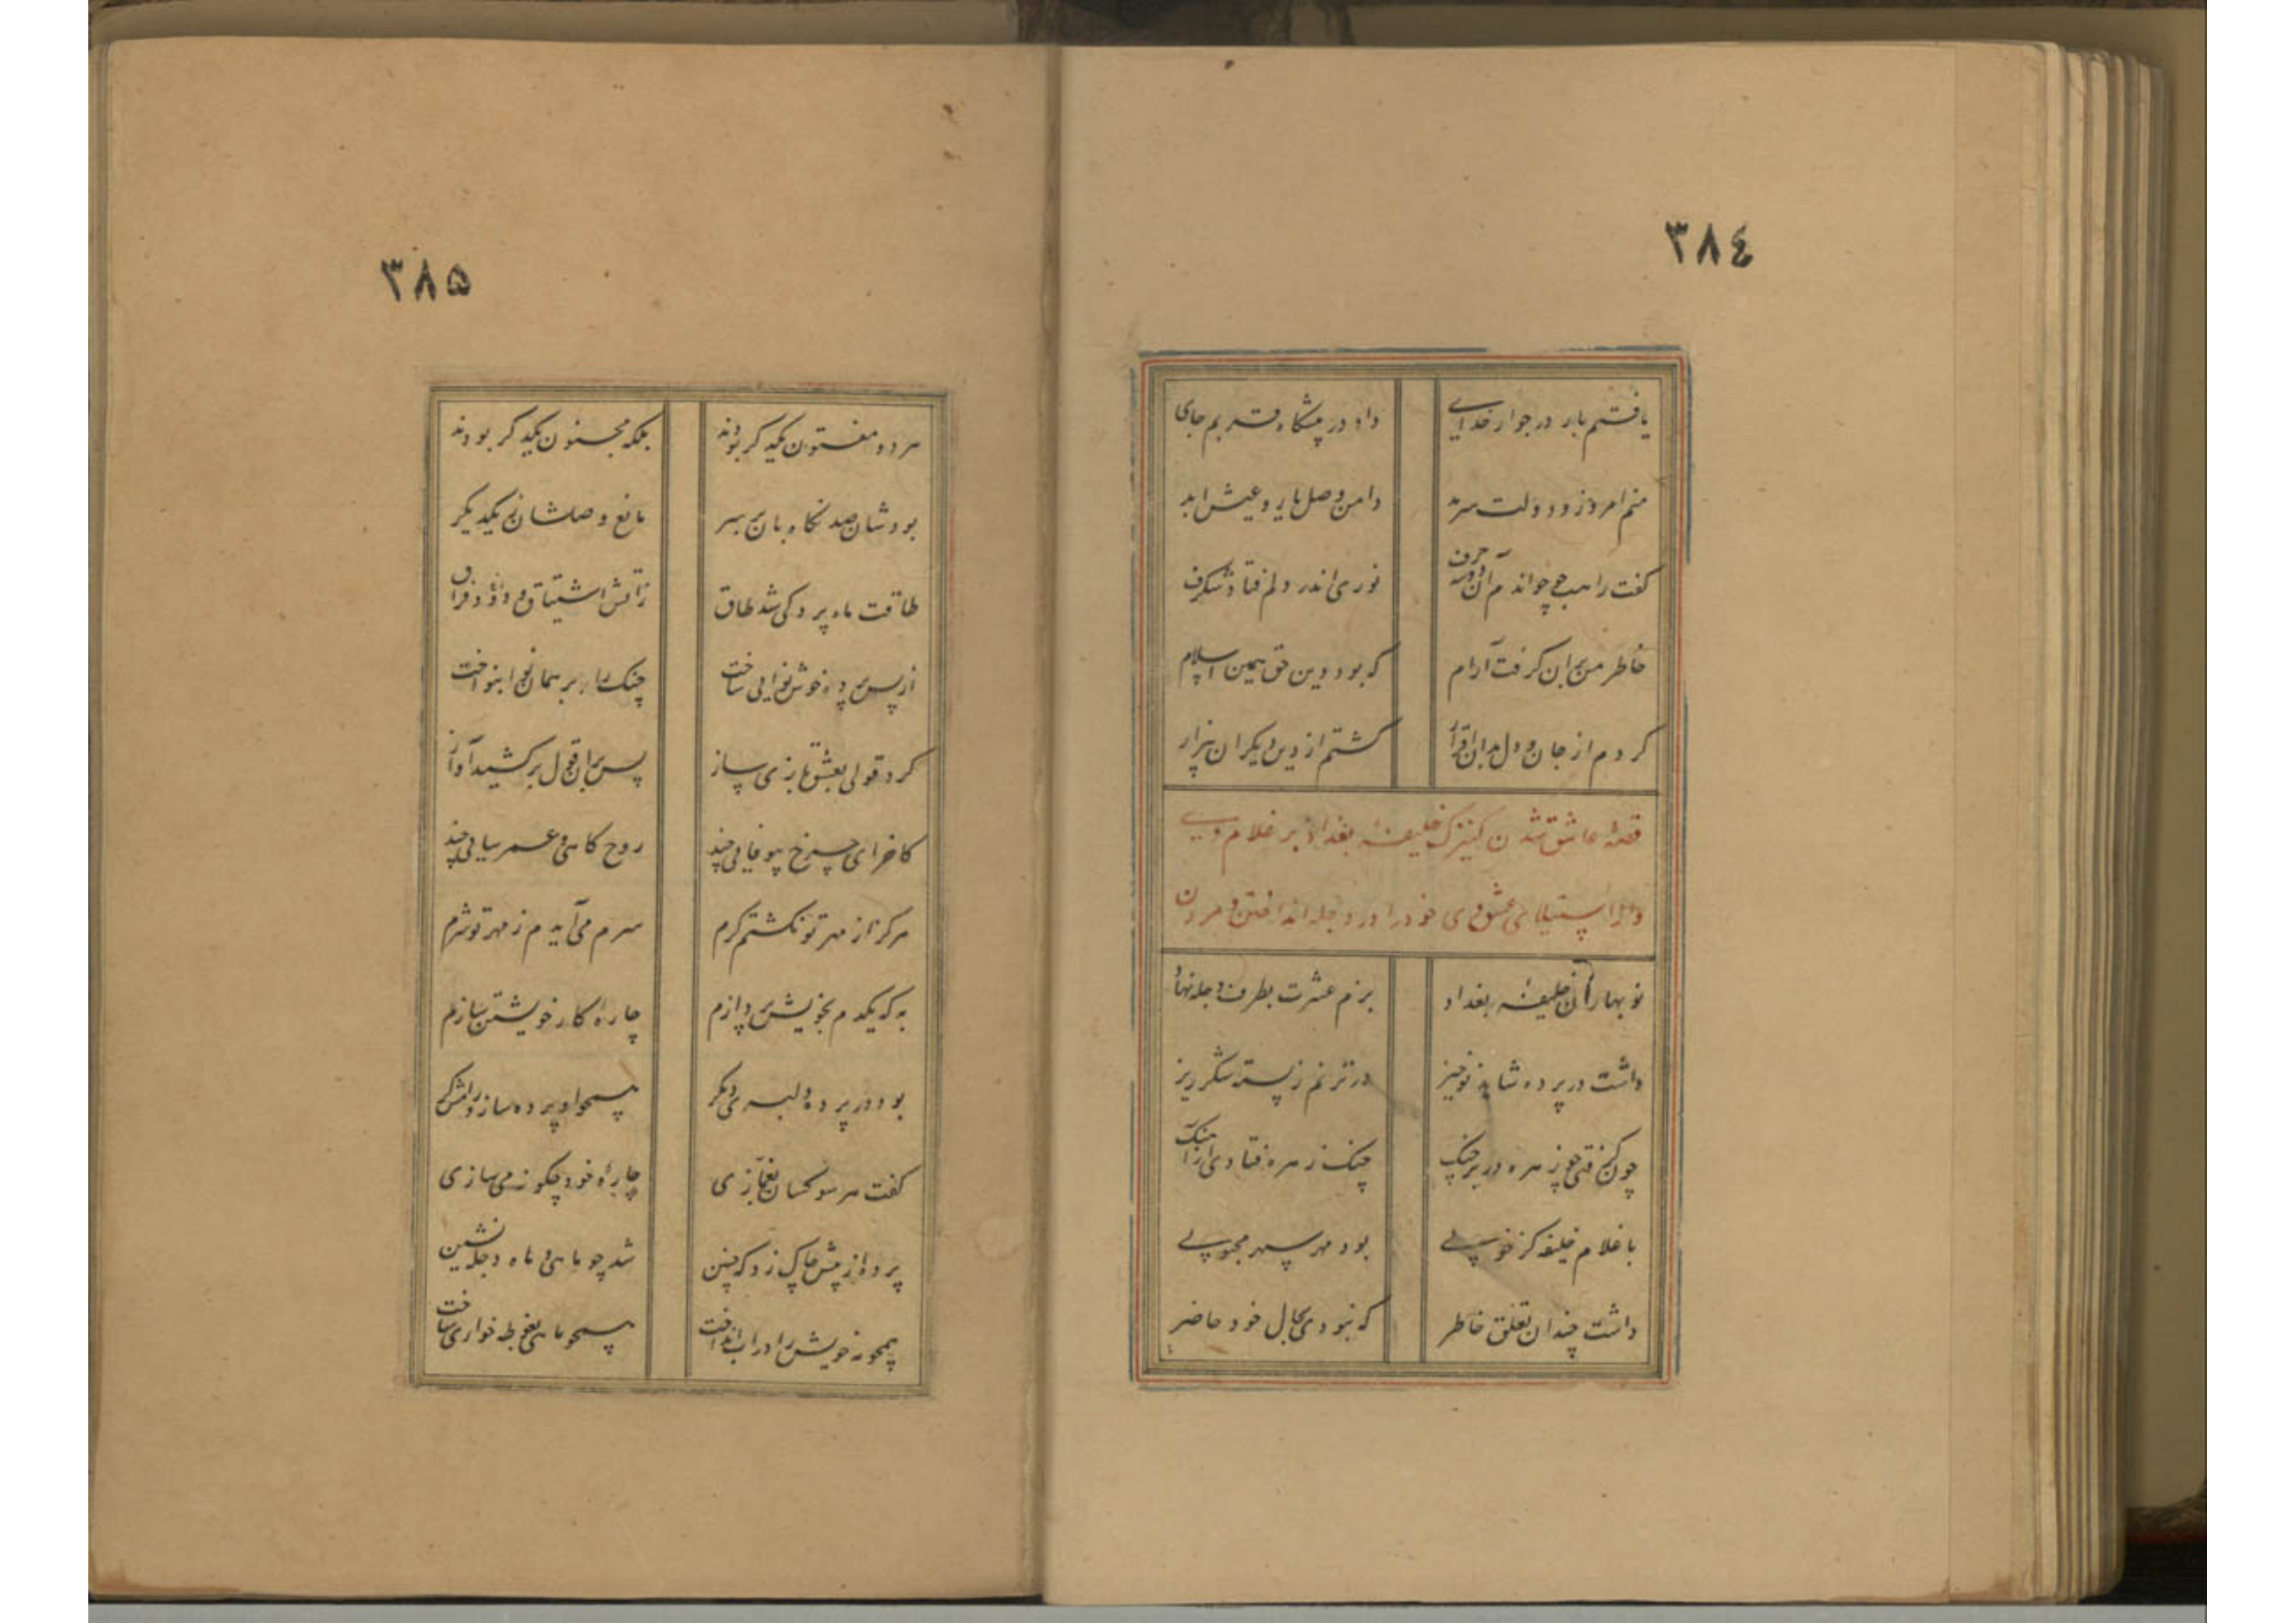 ٣٨٤
یافتم بار در جوار خدای داد در پیشگاه قربم جای
منم امروز و دولت سرمد دامن وصل یار و عیش ابد
کفت راهب چو خواندم آن دو سه حرف نوری اندر دلم فتاد شکرف
خاطر من بران کرفت آرام که بود دین حق همین اسلام
کردم از جان و دل بدان اقرار کشتم از دین دیکران بیزار
قصهٔ عاشق شدن کنیزک خلیفهٔ بغداد بر غلام وی
و از استیلای عشق وی خود را در دجله انداختن و مردن
نوبهاران خلیفهٔ بغداد بزم عشرت بطرف دجله نهاد
داشت در پرده شاهد نوخیز در ترنم ز پسته شکر ریز
چون کرفتی چو زهره در بر چنک چنک زهره فتادی از آهنک
با غلام خلیفه کز خوبی بود مهر سپهر محبوبی
داشت چندان تعلق خاطر که نبودی بحال خود حاضر
٣٨۵
هر دو مفتون یکدکر بودند بلکه مجنون یکدکر بودند
بودشان صد نکاهبان بر سر مانع وصلشان ز یکدیکر
طاقت ماه پردکی شد طاق زآتش اشتیاق و داغ فراق
از پس پرده خوش نوایی ساخت چنک را بر همان نوا بنواخت
کرد قولی بعشق بازی ساز پس بران قول برکشید آواز
کاخر ای چرخ بیوفایی چند روح کاهی و عمر سایی چند
هرکز از مهر تو نکشتم کرم شرم می آیدم ز مهر تو شرم
به که یکدم بخویش پردازم چارهٔ کار خویشتن سازم
بود در پرده دلبری دیکر همچو او پرده ساز و رامشکر
کفت هر سو کسان بغمازی چارهٔ خود چکونه می سازی
پرده از پیش چاک زد که چنین شد چو ماهی و ماه دجله نشین
همچو مه خویش را در آب انداخت همچو ماهی بغوطه خواری ساخت